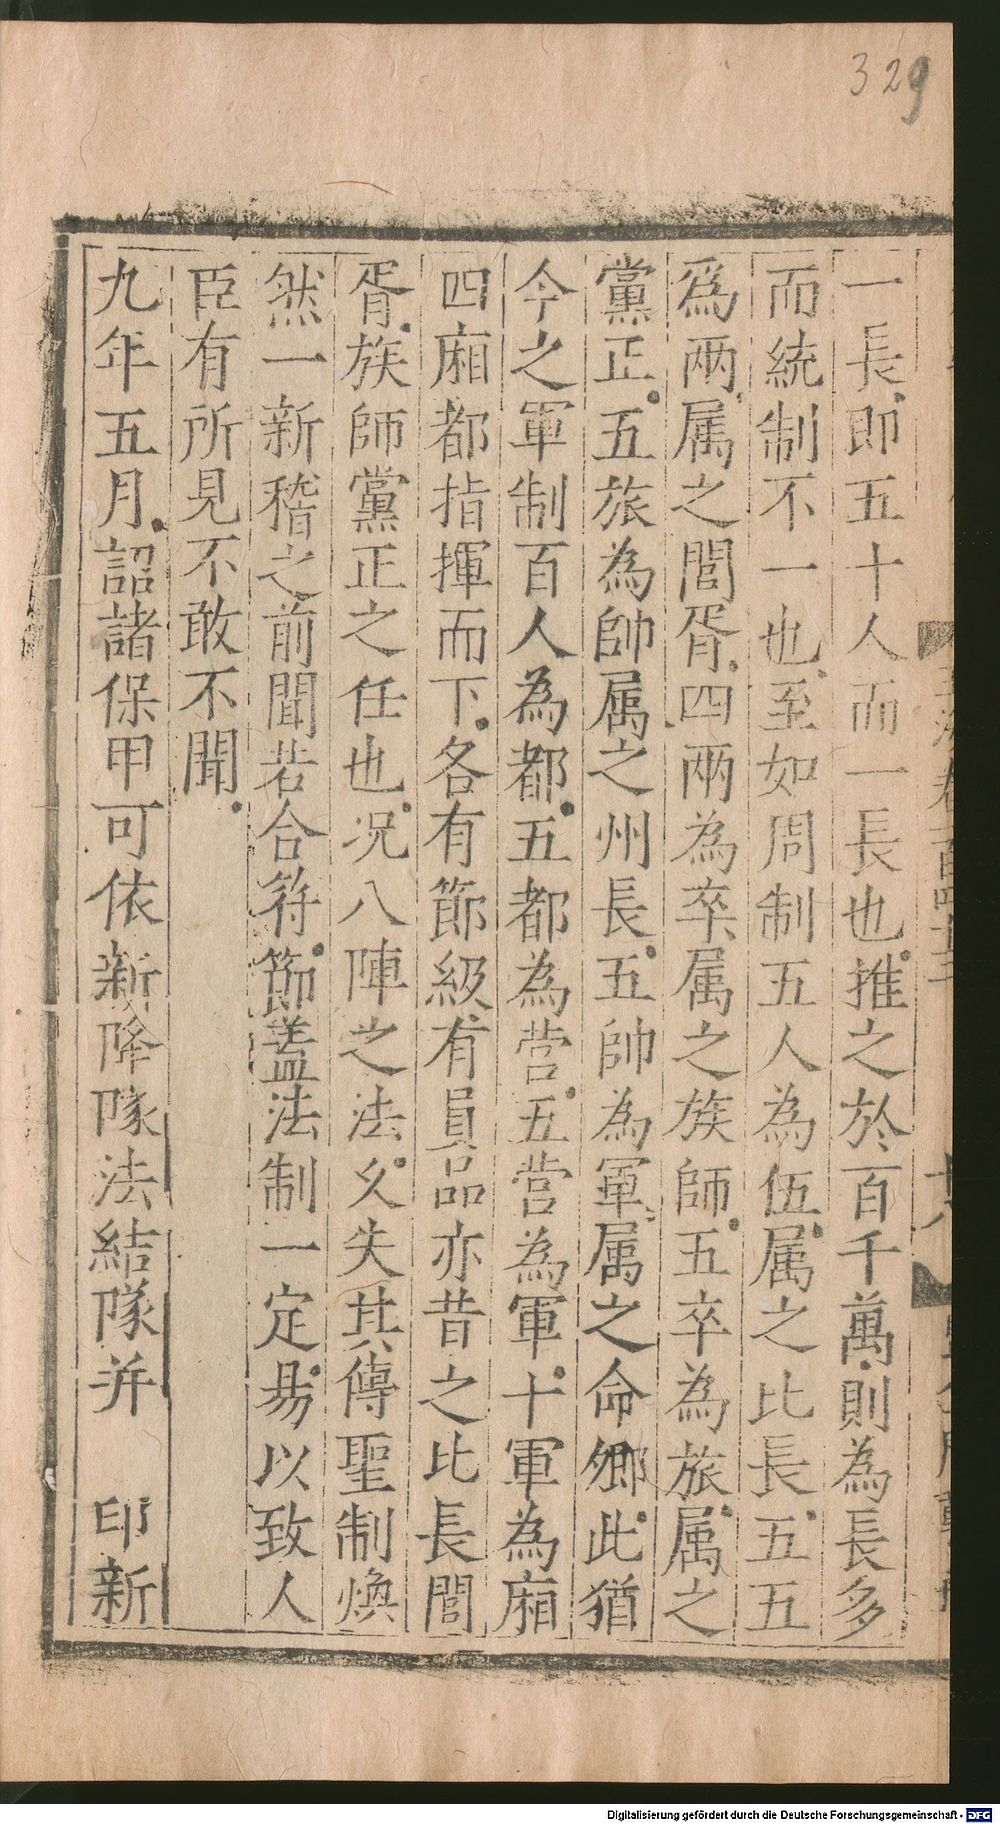 329
一長即五十人而一長也推之於百千萬則為長多
而統制不一也至如周制五人為伍属之比長五五
為兩属之閭胥四兩為卒属之族師五卒為旅属之
黨正五旅為帥属之州長五帥為軍属之命鄉此猶
今之軍制百人為都五都為营五营為軍十軍為廂
四廂都指揮而下各有節級有員品亦昔之比長閭
胥族師黨正之任也况八陣之法乆失其傳聖制煥
然一新稽之前聞若合符節盖法制一定易以致人
臣有所見不敢不聞
九年五月詔諸保甲可依新降隊法結隊并　印新
Digitalisierung gefördert durch die Deutsche Forschungsgemeinschaft - DFG